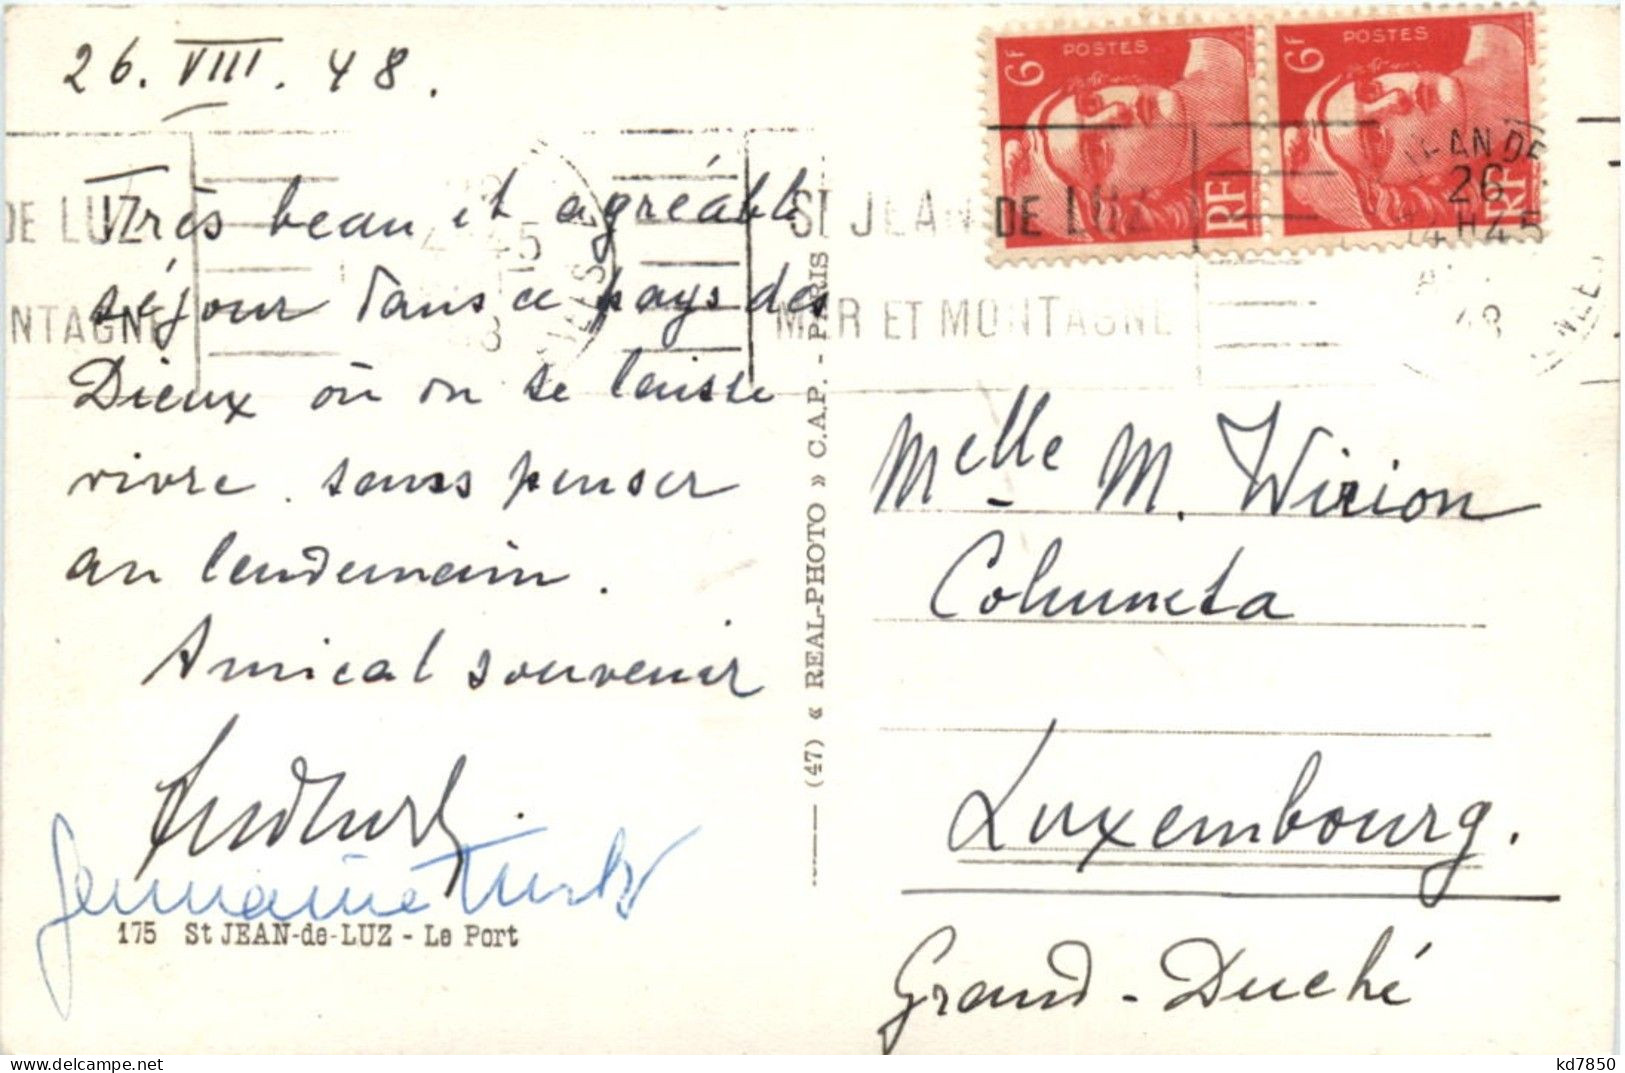 26. VIII. 48.
Très beau et agréable
séjour dans ce pays des
Dieux où on se laisse
vivre sans penser
au lendemain.
Amical souvenir
Germaine
175 St JEAN-de-LUZ - Le Port
(47) « REAL-PHOTO » C.A.P. - PARIS
6F POSTES RF
6F POSTES RF
DE LUZ
NTAGNE
ST JEAN DE LUZ
MER ET MONTAGNE
JEAN DE
26
14H45
48
Melle M. Wirion
Columeta
Luxembourg.
Grand-Duché
www.delcampe.net
kd7850